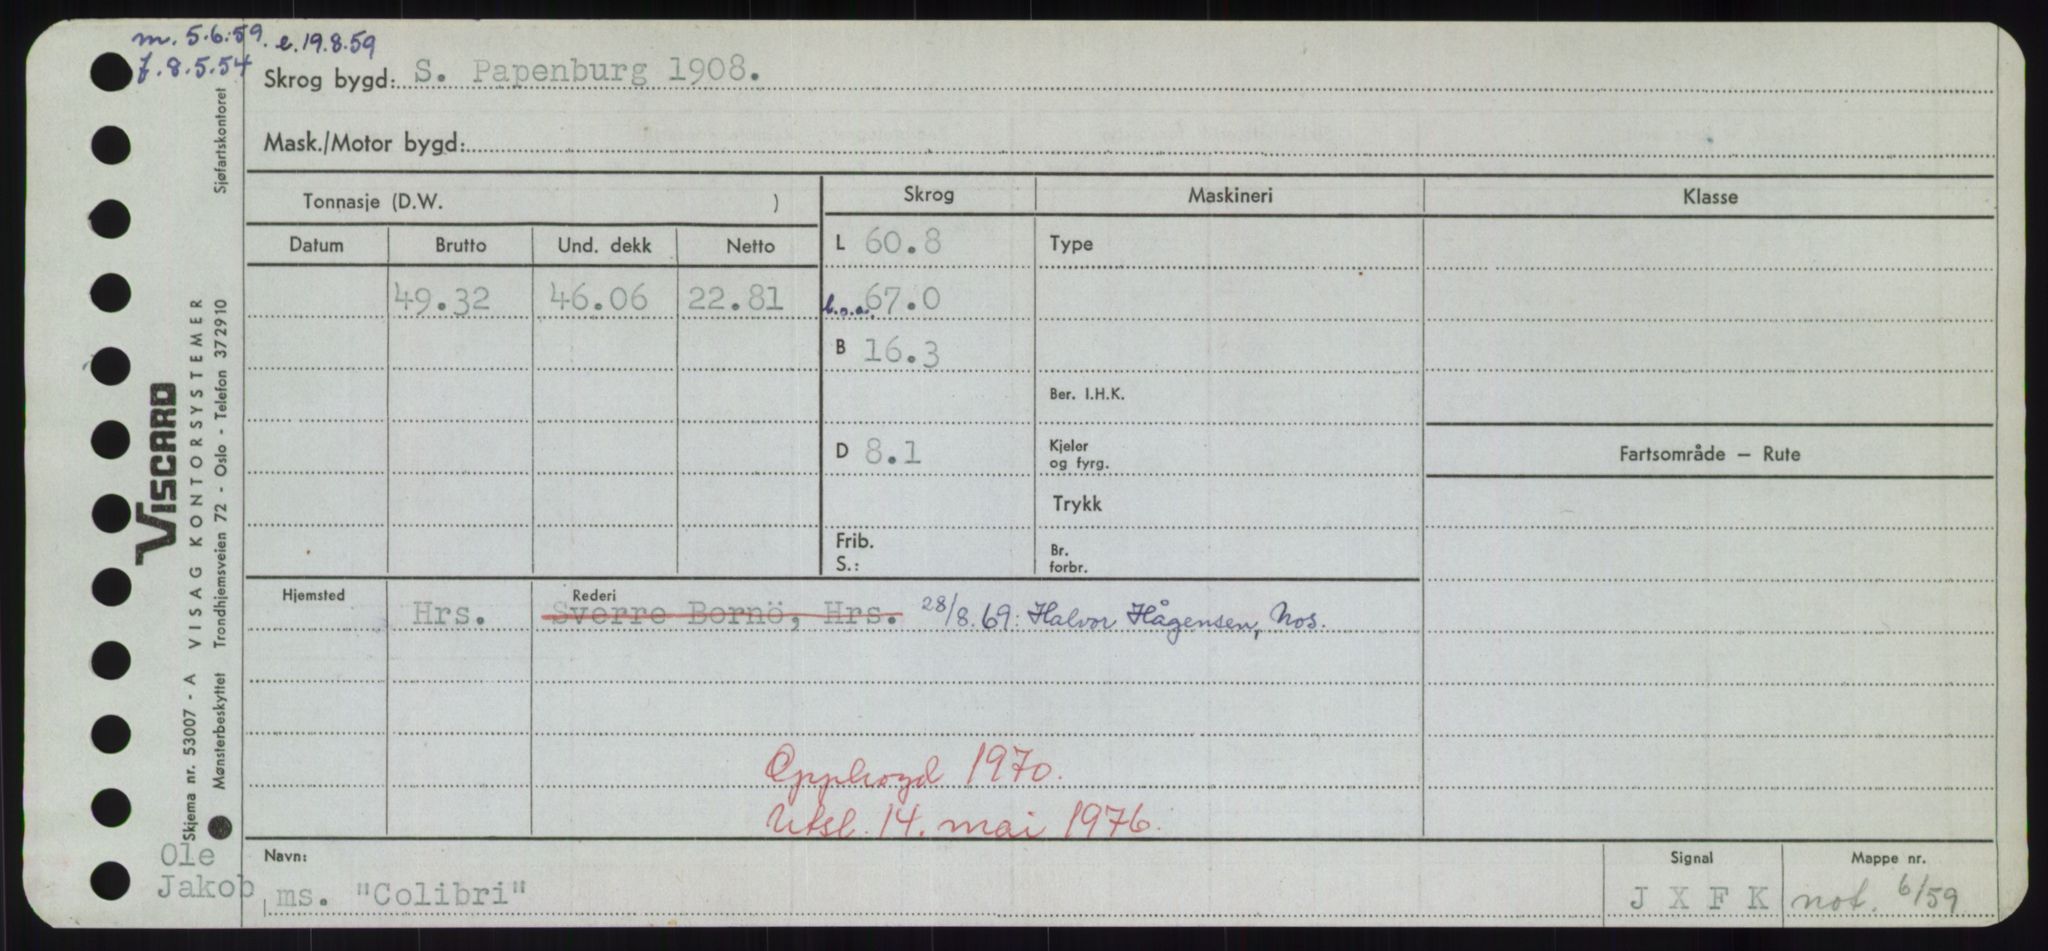 m. 5.6.59. e. 19.8.59
f. 8.5.54
Skrog bygd: S. Papenburg 1908.
Mask./Motor bygd:
Tonnasje (D.W. )
Skrog
Maskineri
Klasse
Datum Brutto Und. dekk Netto
L 60.8
Type
49.32 46.06 22.81
l.o.a. 67.0
B 16.3
Ber. I.H.K.
D 8.1
Kjeler
og fyrg.
Fartsområde — Rute
Trykk
Frib.
S.:
Br.
forbr.
Hjemsted
Rederi
Hrs. Sverre Bornö, Hrs. 28/8.69: Halvor Hågensen, Nos.
Opphogd 1970.
Utsl. 14. mai 1976.
Ole
Jakob
Navn:
ms. "Colibri"
Signal
J X F K
Mappe nr.
not. 6/59
VISCARD
VISAG KONTORSYSTEMER
Skjema nr. 53007 - A
Mønsterbeskyttet Trondhjemsveien 72 - Oslo - Telefon 372910
Sjøfartskontoret